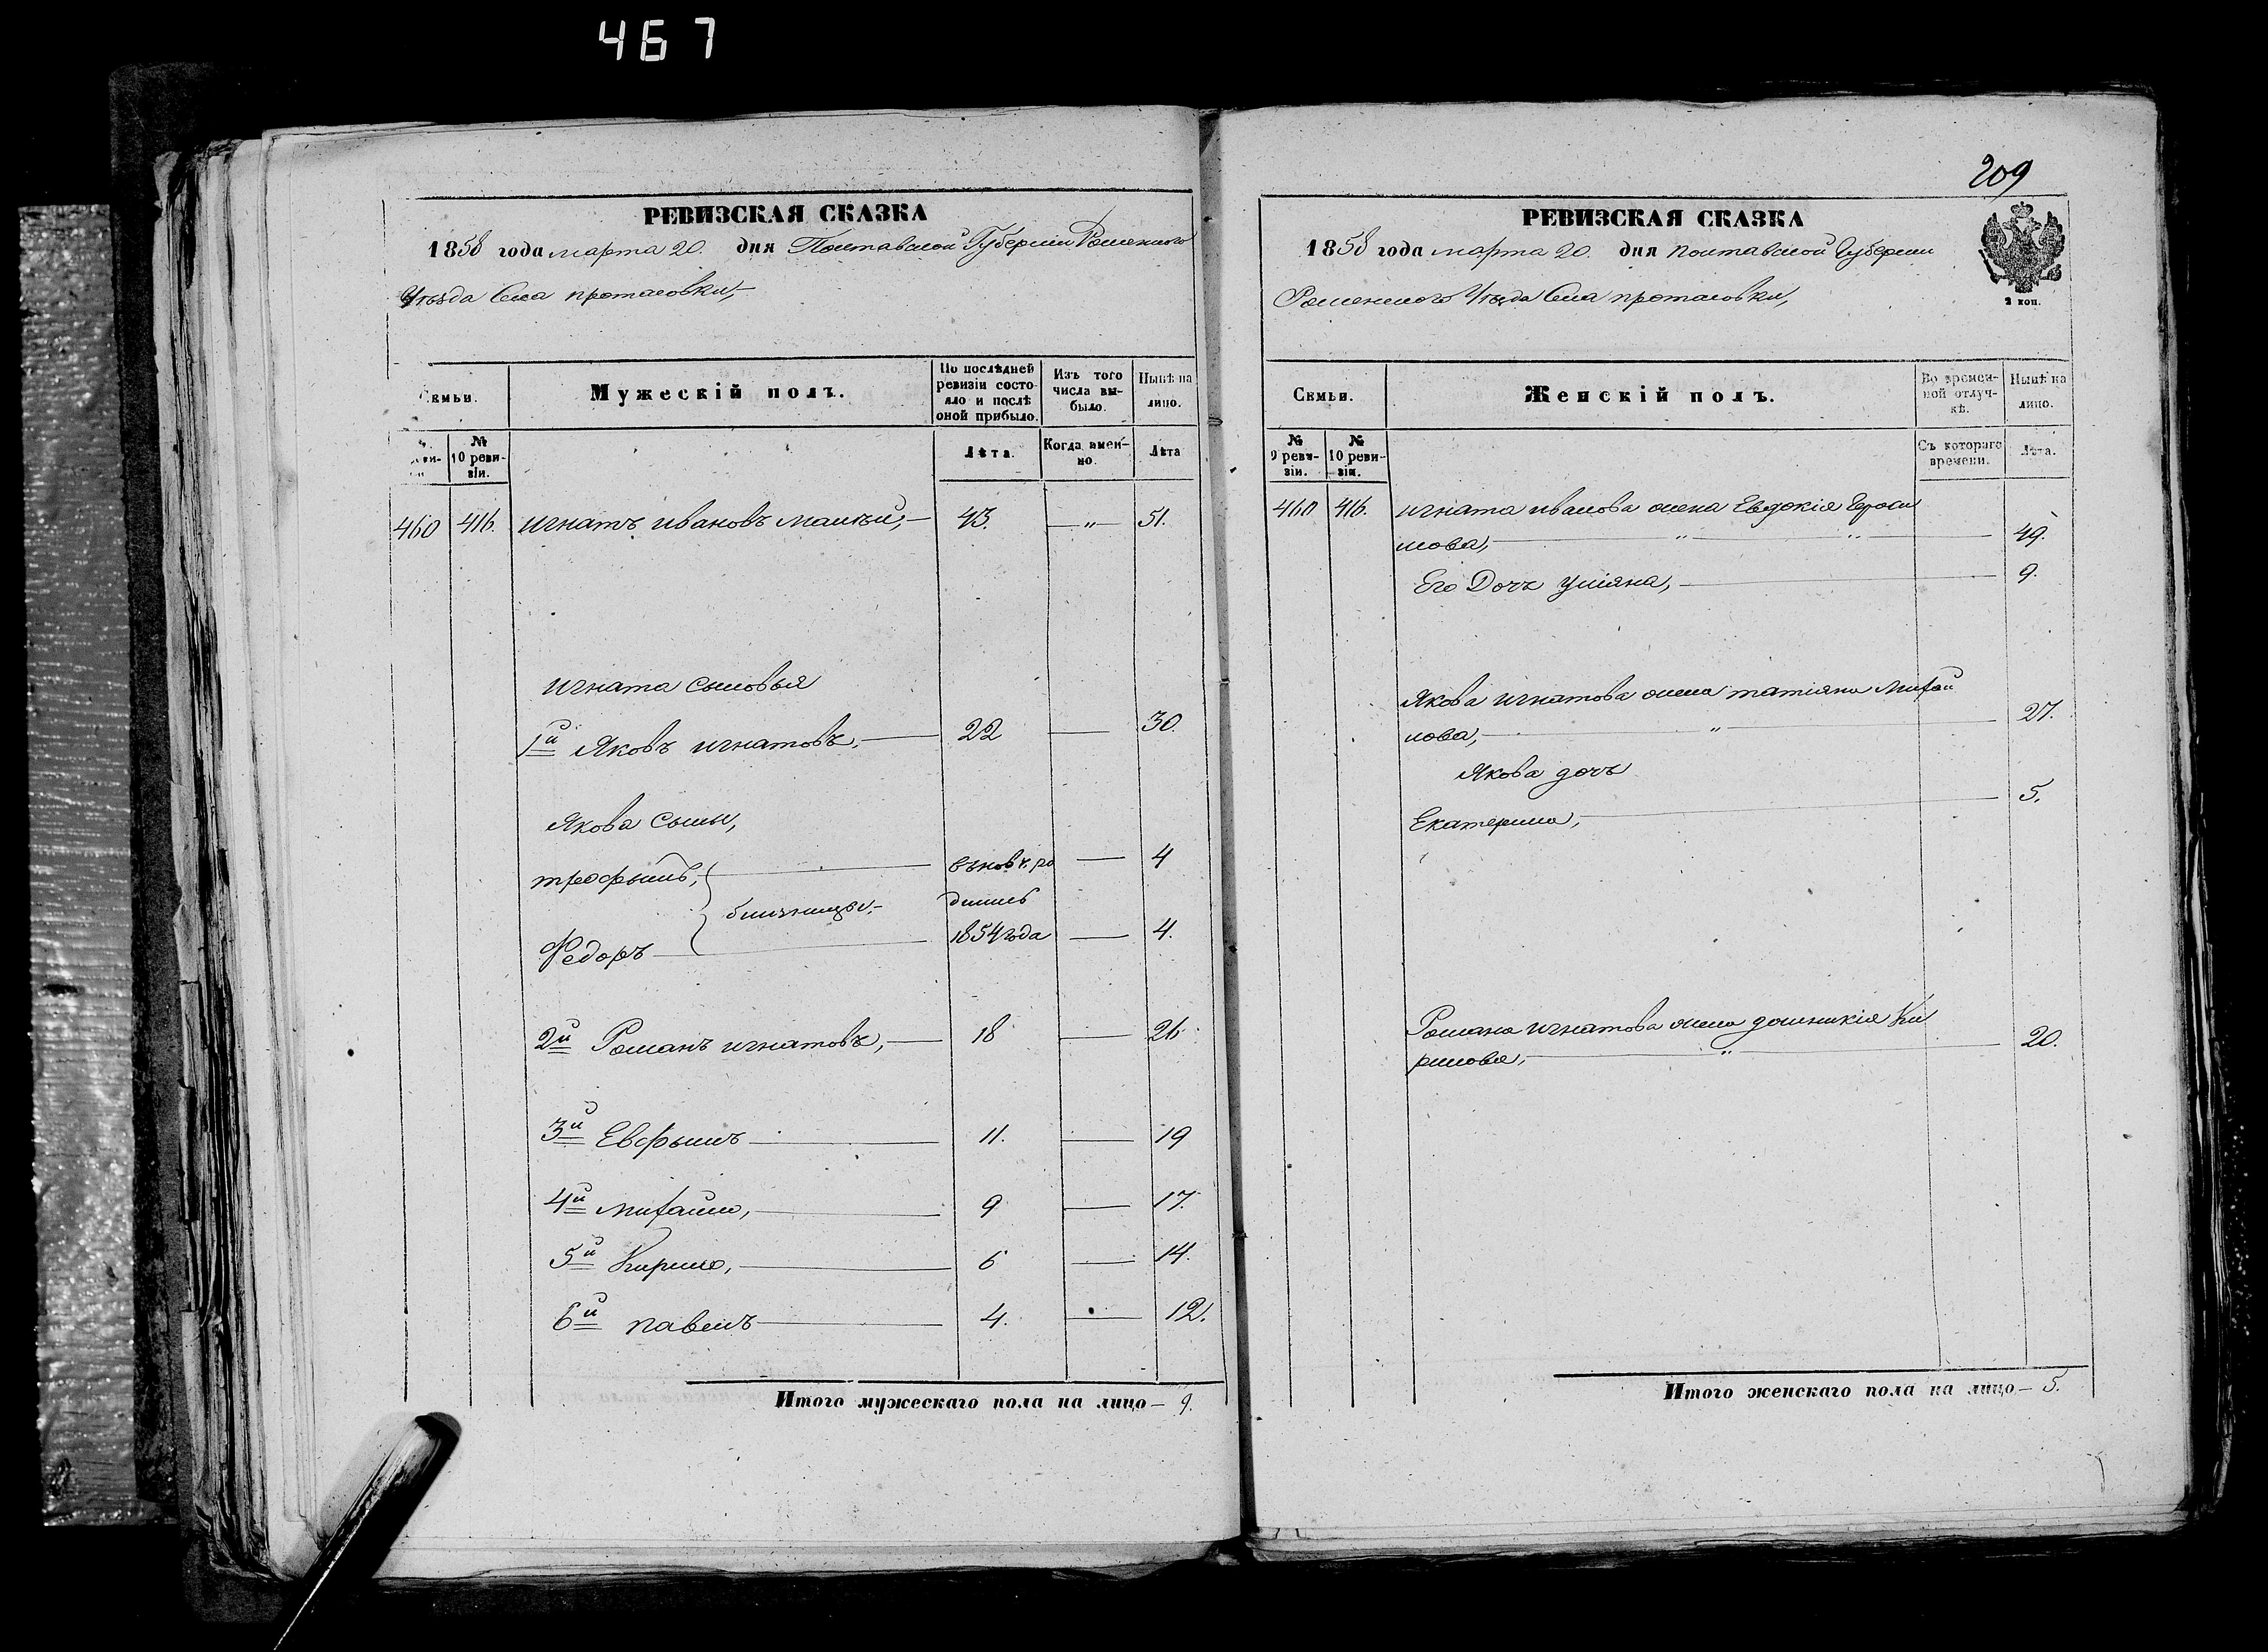 467
РЕВИЗСКАЯ СКАЗКА
1858 года марта 20. дня Полтавской Губернiи Роменского
Уѣзда Села протасовки,
Семьи.
Мужескій полъ.
По послѣдней ревизіи состояло и послѣ оной прибыло.
Изъ того числа выбыло.
Нынѣ на лицо.
№ 10 ревизіи.
Лѣта.
Когда имѣнно.
Лѣта
460 416. игнатъ ивановъ 43. — " — 51.
игната сыновья
1й Яковъ игнатовъ, — 22 — 30.
Якова сыны,
трофымъ, — вновь ро — 4
близнецы,— дились
Федоръ — 1854 года — 4.
2й Романъ игнатовъ, — 18 — 26
3й Евфымъ — 11. — 19
4й михайло, — 9 — 17.
5й Кирило, — 6 — 14.
6й павелъ — 4. — 12.
Итого мужескаго пола на лицо — 9.
209
РЕВИЗСКАЯ СКАЗКА
1858 года марта 20. дня полтавской Губернiи
Роменского Уѣзда Села протасовки,
2 коп.
Семьи.
Женскій полъ.
Во временной отлучкѣ.
Нынѣ на лицо.
№ 9 ревизіи.
№ 10 ревизіи.
Съ котораго времени.
Лѣта.
460 416. игната иванова жена Евдокія Гераси
мова, — " — " — 49.
Его Дочь уліяна, — 9.
Якова игнатова жена татіяна михай
лова, — " — 27.
Якова дочь
Екатерина, — 5.
Романа игнатова жена домникія Ки
рилова, — " — 20.
Итого женскаго пола на лицо — 5.